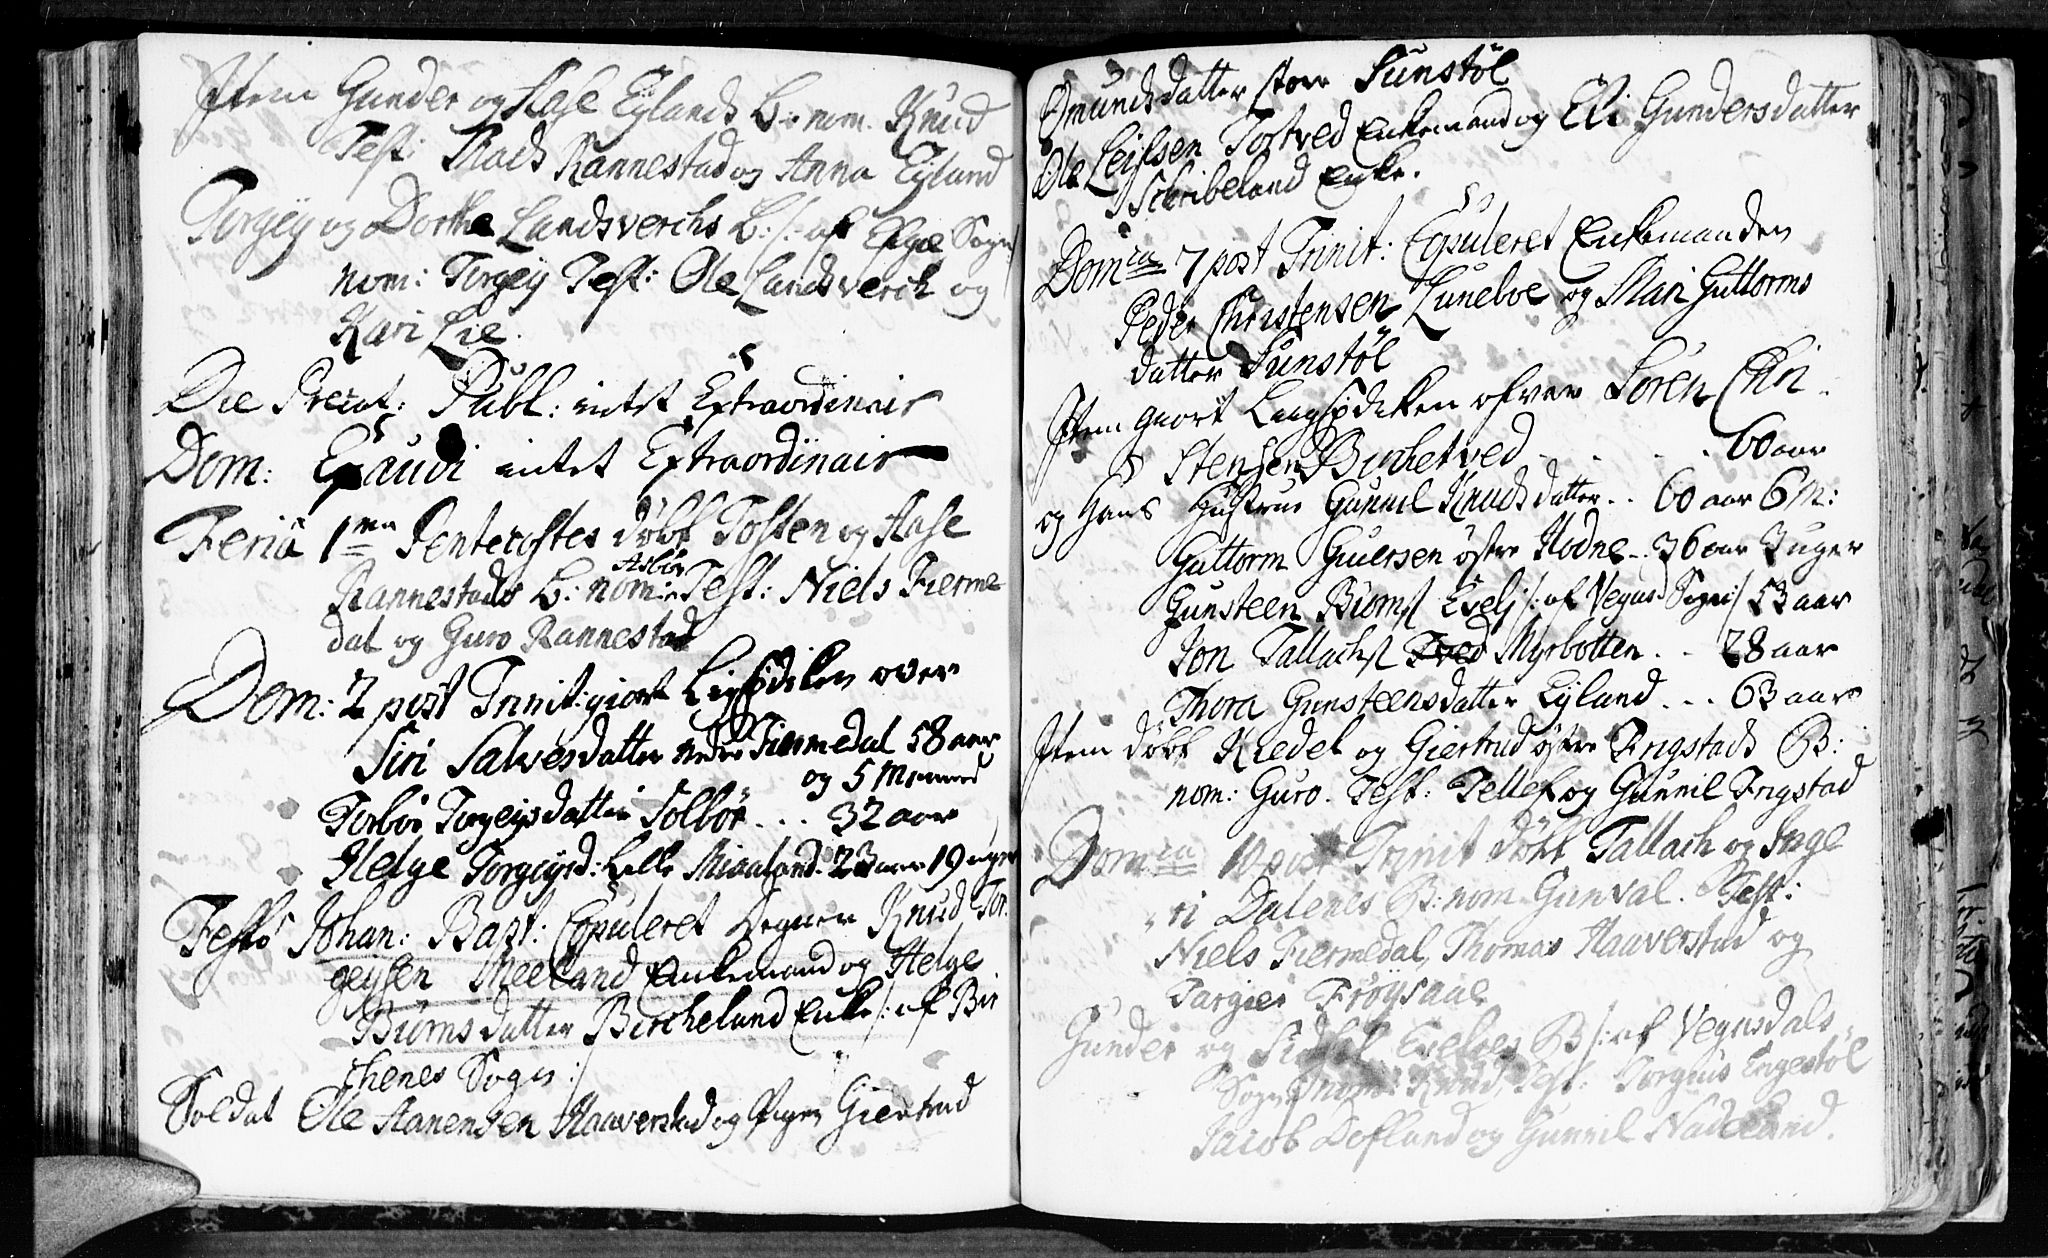 Item Gunder og Aase Eylands B: nom. Knud
Test: Mads Rannestad og Anna Eyland
Torgey og Dorthe Landsverchs B: /: af Efje Sogn /
nom: Torgey Test: Ole Landsverch og
Kari Lie.
Die Precat: Publ: intet Extraordinair
Dom: Exaudi intet Extraordinair
Feria 1ma Pentecostes döbt Tosten og Aase
Asbör
Rannestads B: nom: Test: Niels Fierme
dal og Guro Rannestad
Dom: 2 post Trinit: giort Ligprediken over
Siri Salvesdatter nedre Fiermedal 58 aar
og 5 Maaned
Torbör Torgeysdatter Solbör . . . 32 aar
Helge Torgeysd: Lille Misaland. 23 aar 19 uger
Festo Johan: Bapt: Copuleret Degnen Knud Tor
geysen Meeland Enkemand og Helge
Biörnsdatter Bircheland Enke /: af Bir
chenes Sogn :/
Soldat Ole Aanensen Haaverstad og Pigen Giertrud
Omundsdatter store Sunstöl
Ole Leifsen Tostved Enkemand og Eli Gundersdatter
Schibeland Enke.
Domca 7 post Trinit: Copuleret Enkemanden
Peder Christensen Luneboe og Mari Guttorms
datter Sunstöl
Item giort Liigprediken ofver Sören Chri
stensen Birchetved . . . . 60 aar
og Hans Hustrue Gunnil Knudsdatter . . 60 aar 6 M:
Guttorm Giversen östre Hodne . . 36 aar 3 uger
Gunsteen Biörns/ Evelj /: af Vegusd Sogn :/ 53 aar
Jon Tallachs/ Tved Myrbotten . . 28 aar
Thora Gunsteensdatter Eyland . . . 63 aar
Item döbt Kiedel og Giertrud östre Frigstads B:
nom: Guro. Test: Tellef og Gunnil Frigstad
Domca 10 post Trinit döbt Tallach og Inge
ri Dalenes B: nom. Gunval. Test:
Niels Fiermedal, Thomas Haaverstad og
Targier Fröysaae
Gunder og Sidsel Evelies B /: af Vegusdals
Sogn / nom: Knud, Test: Torgius Engestöl
Jacob Dofland og Gunnil Nadeland.